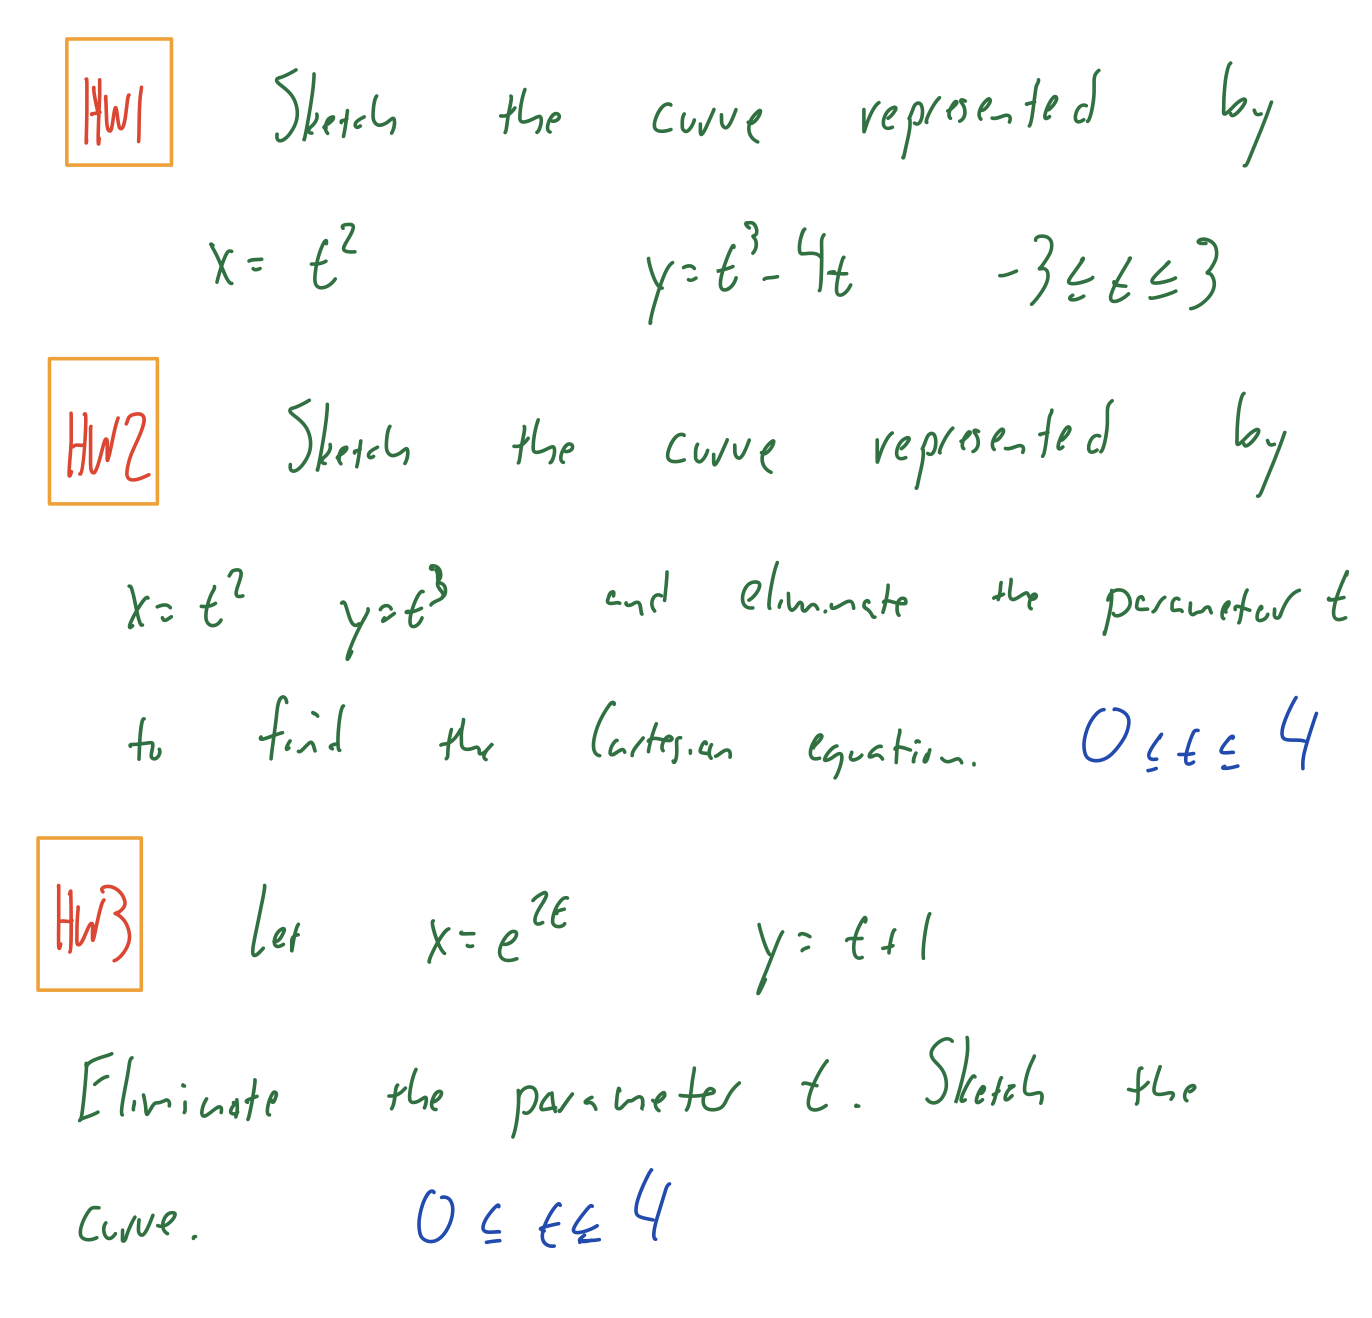 HW1 Sketch the curve represented by
x = t² y = t³ - 4t -3 ≤ t ≤ 3
HW2 Sketch the curve represented by
x = t² y = t³ and eliminate the parameter t
to find the Cartesian equation. 0 ≤ t ≤ 4
HW3 Let x = e²ᵗ y = t + 1
Eliminate the parameter t. Sketch the
curve. 0 ≤ t ≤ 4